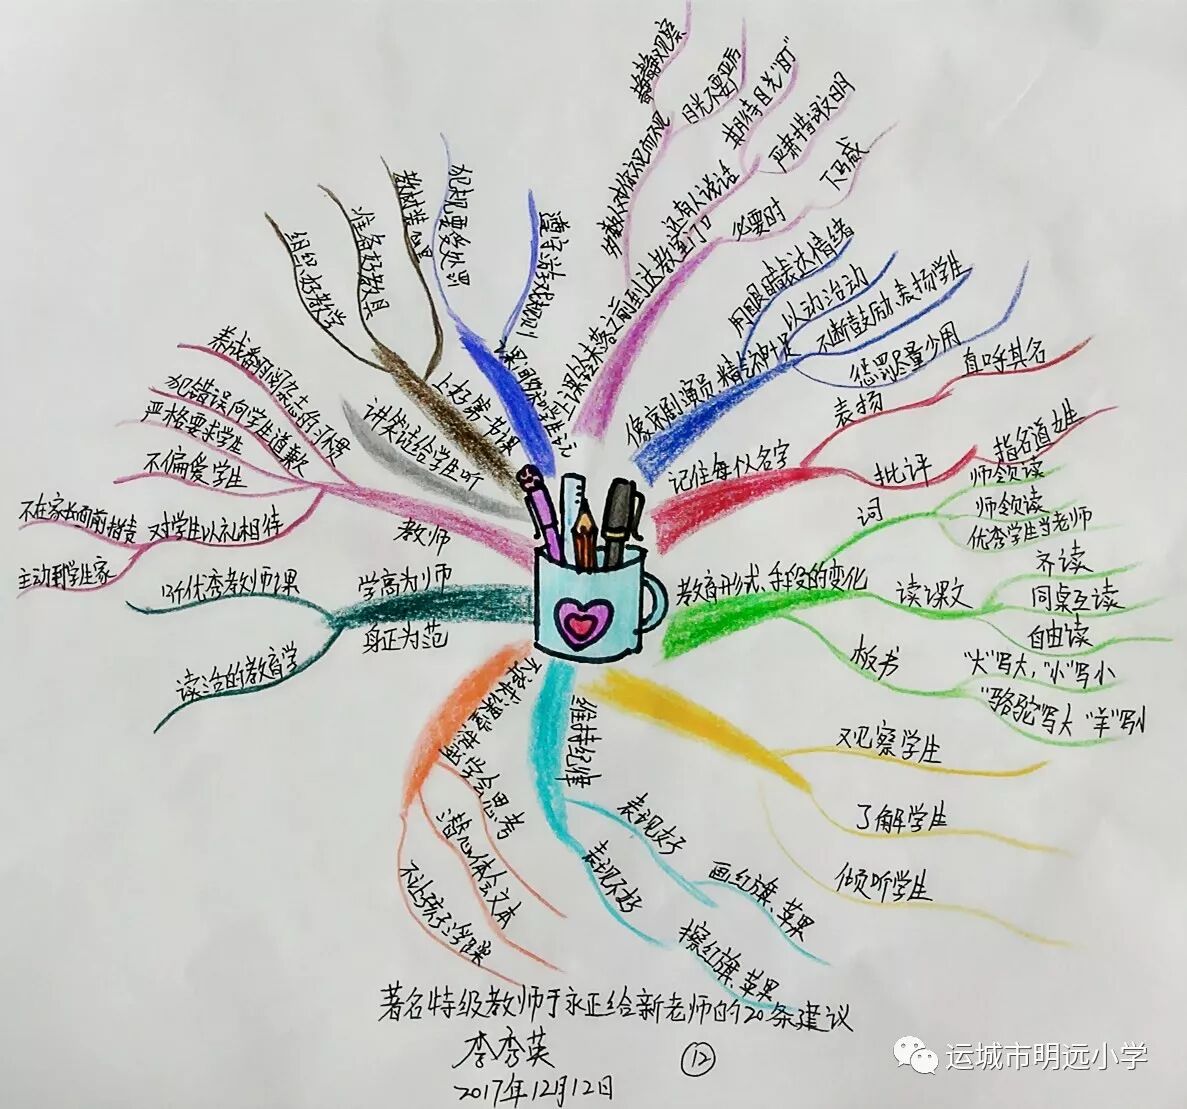 上课铃未落之前到达教室门口
静静观察
目光不要严厉
还有人说话
期待目光“盯”
严肃措词文明
必要时
下马威
像京剧演员,精气神十足
用眼睛表达情绪
以动治动
不断鼓励、表扬学生
惩罚尽量少用
记住每位名字
表扬
直呼其名
批评
指名道姓
教育形式、手段的变化
词
师领读
师领读
优秀学生当老师
读课文
齐读
同桌互读
自由读
板书
“大”写大,“小”写小
“骆驼”写大“羊”写小
观察学生
了解学生
倾听学生
维持纪律
表现好
画红旗、苹果
表现不好
擦红旗、苹果
学会思考
潜心体会文本
学高为师
身正为范
听优秀教师课
读活的教育学
教师
养成看报阅杂志的习惯
犯错误向学生道歉
严格要求学生
不偏爱学生
对学生以礼相待
不在家长面前指责
主动到学生家
讲笑话给学生听
上好第一节课
组织好教学
准备好教具
教材装心里
课间参加学生活
犯规要受处罚
遵守游戏规则
著名特级教师于永正给新老师的20条建议
李秀英
⑫
2017年12月12日
运城市明远小学